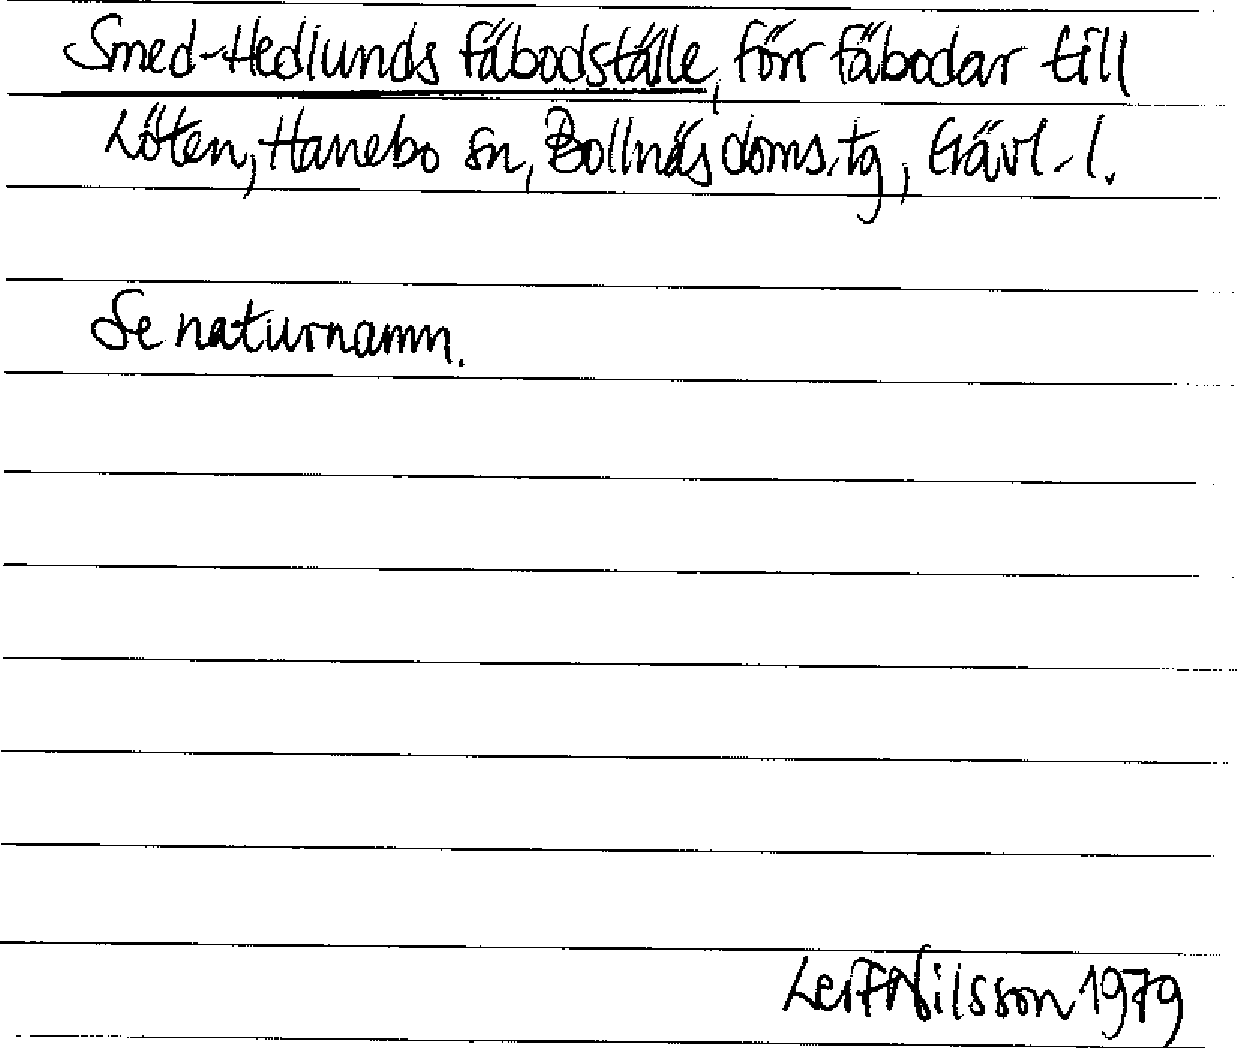 Smed-Hedlunds fäbodställe, förr fäbodar till
Löten, Hanebo sn, Bollnäs doms.tg, Gävl.l.
Se naturnamn.
Leif Nilsson 1979